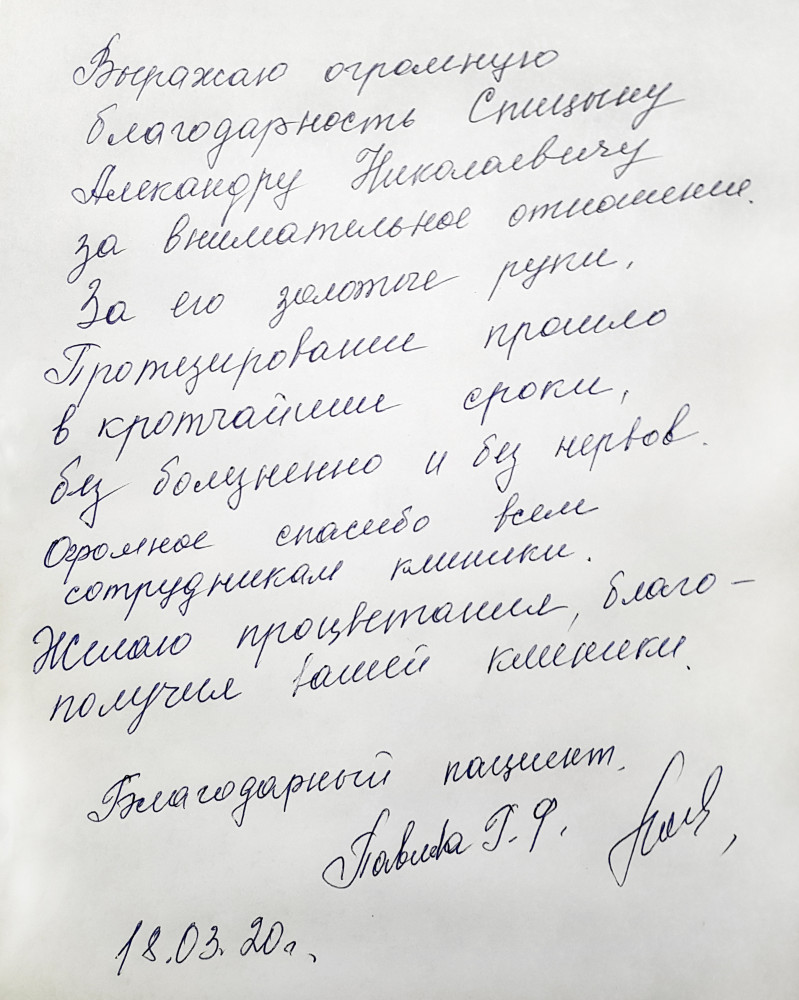 Выражаю огромную
благодарность Спицыну
Алекандру Николаевичу
за внимательное отношение.
За его золотые руки,
Протезирование прошло
в кротчайшие сроки,
без болезненно и без нервов.
Огромное спасибо всем
сотрудникам клиники.
Желаю процветания, благо-
получия вашей клиники.
Благодарный пациент.
Г.Ф.
18.03.20г.